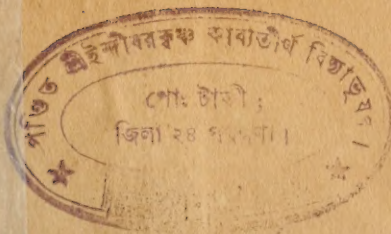 পণ্ডিত শ্রীইন্দীবরকৃষ্ণ কাব্যতীর্থ বিদ্যাভূষণ।
পোঃ টাকী ;
জিলা ২৪ পরগণা।